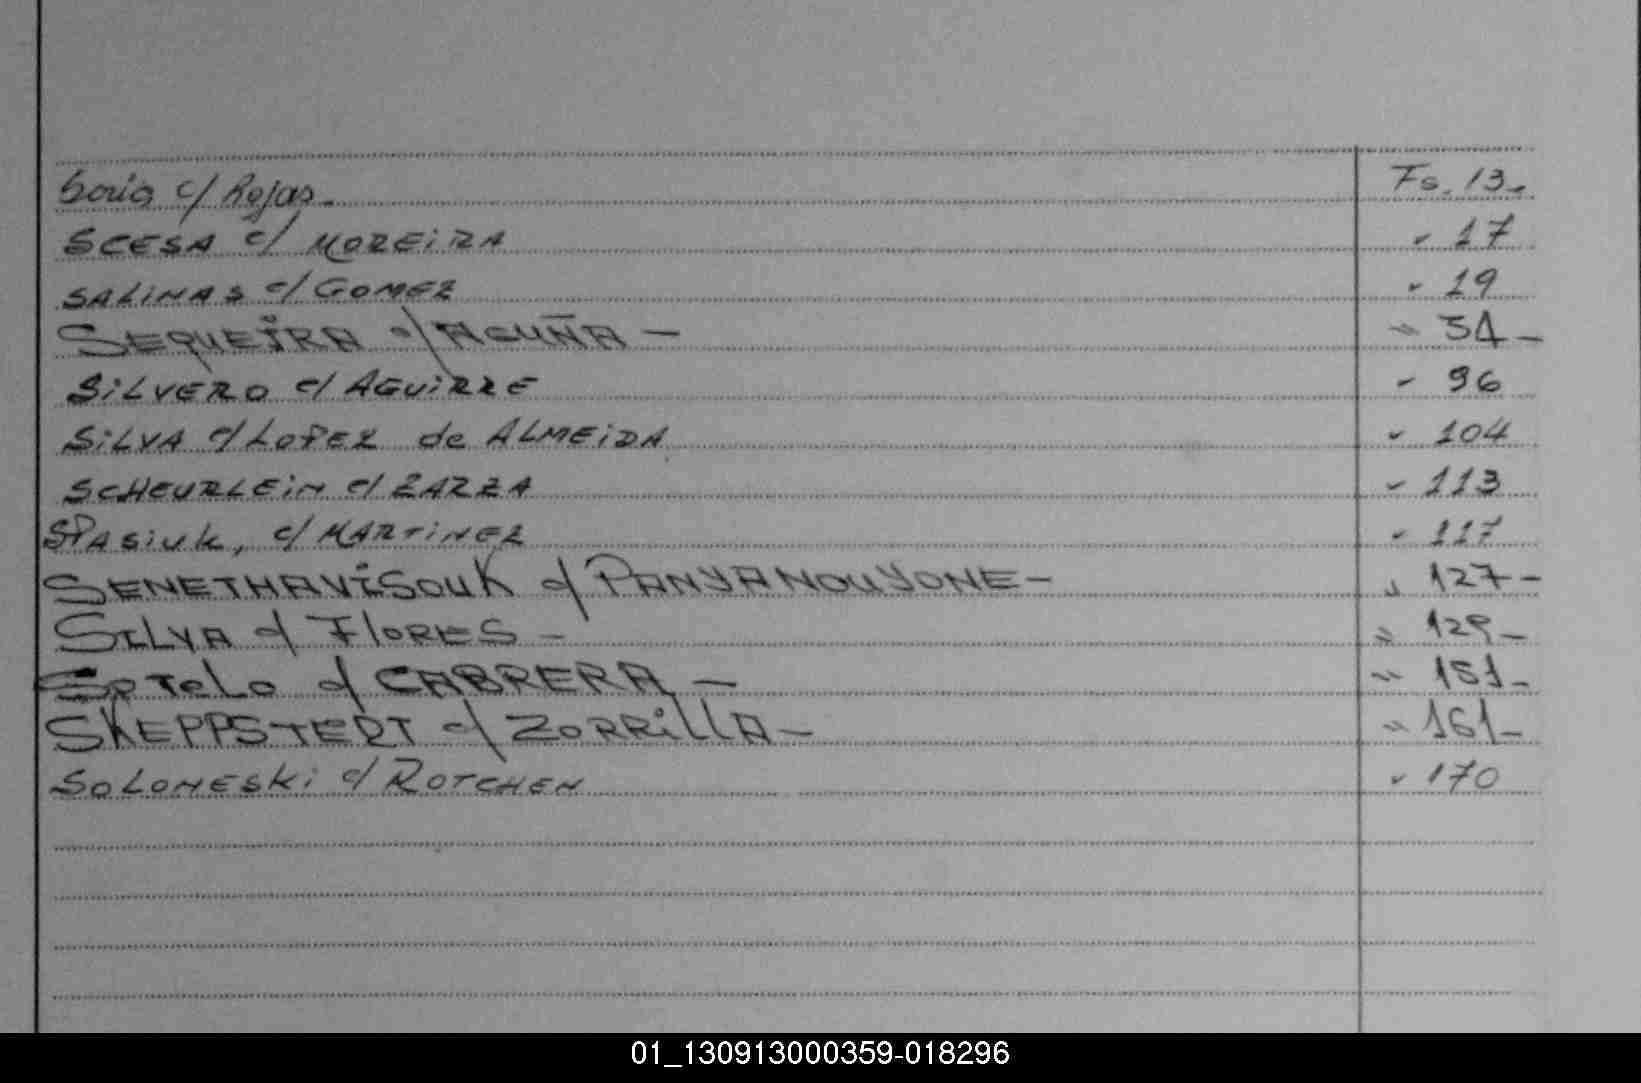 Soria c/ Rojas. Fs. 13.
SCESA c/ MOREiRA " 17
SALINAS c/ GOMEZ " 19
SEQUEiRA c/ AGUÑA — " 54 –
SiLVERO c/ AGUiRRE " 96
SiLVA c/ LOPEZ de ALMEiDA " 104
SCHEURLEiN c/ ZARZA " 113
SPASiuk, c/ MARTiNEZ " 117
SENETHAViSOUK c/ PANYANOUYONE – " 127 –
SILVA c/ FlORES – " 129 –
SOTELO c/ CABRERA — " 151 –
SKEPPSTEDT c/ ZORRillA – " 161 –
SOLOMESKi c/ ROTCHEN " 170
01_130913000359-018296